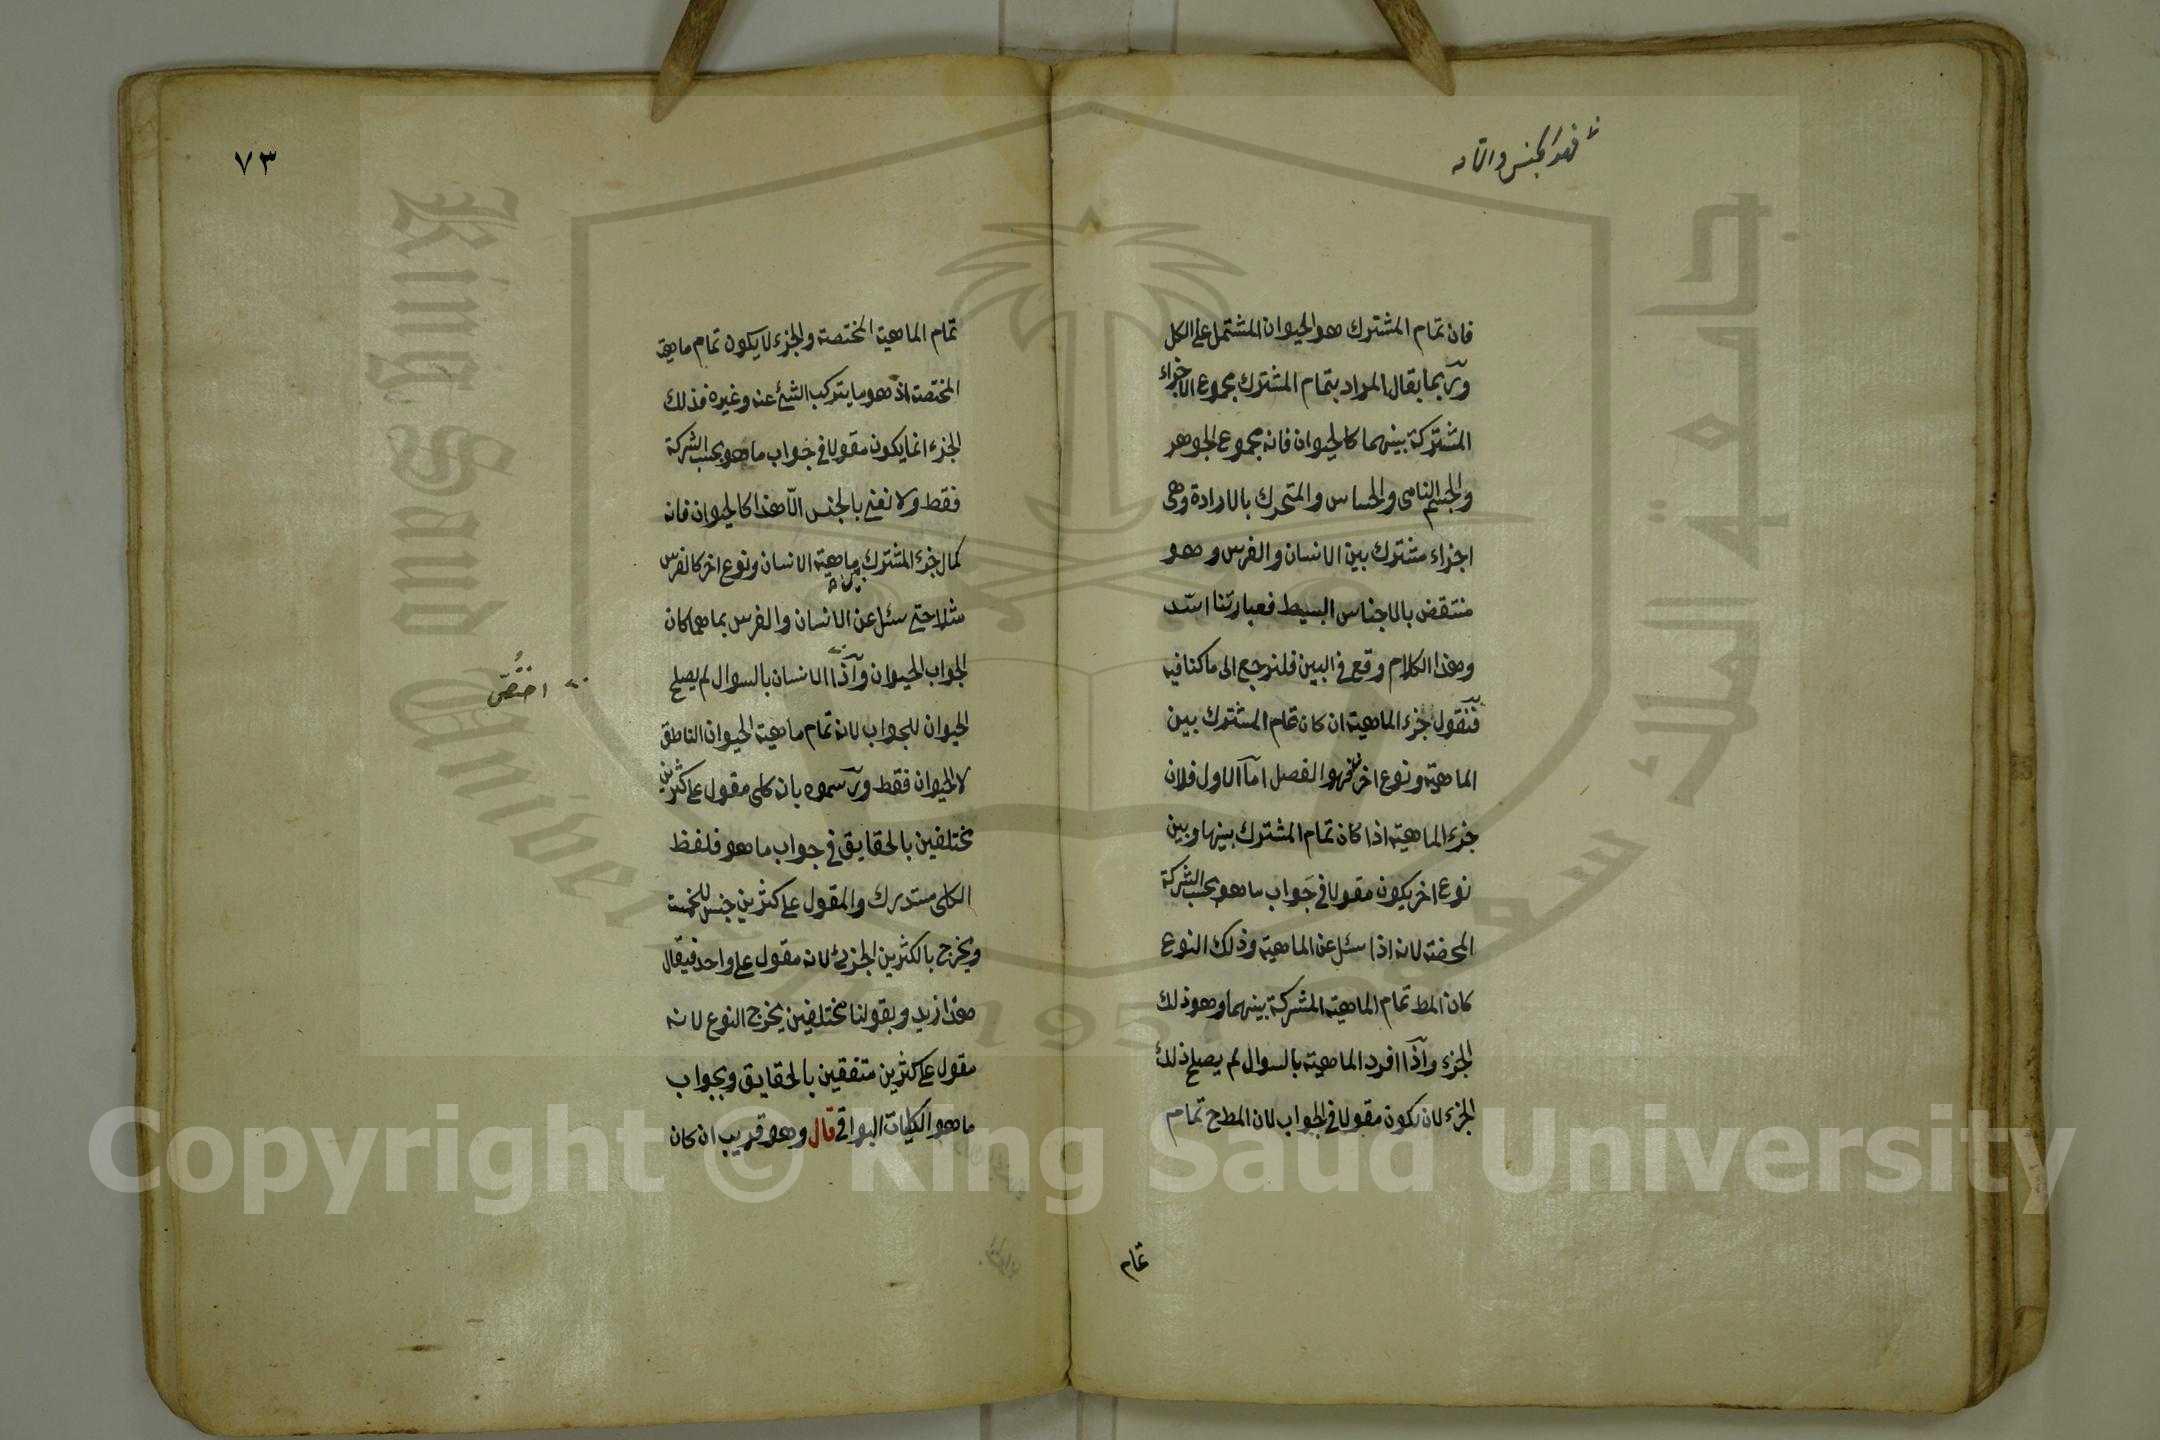 فهو الجنس والا
فان تمام المشترك هو الحيوان المشتمل على الكل
وربما يقال المراد بتمام المشترك مجموع الاجزاء
المشتركة بينهما كالحيوان فانه مجموع الجوهر
والجسم النامى والحساس والمتحرك بالارادة وهى
اجزاء مشترك بين الانسان والفرس وهو
منتقض بالاجناس البسيط فعبارتنا اسد
وهذا الكلام وقع فى البين فلنرجع الى ما كنا فيه
فنقول جزء الماهية ان كان تمام المشترك بين
الماهية ونوع اخر فهو الفصل اما الاول فلان
جزء الماهية اذا كان تمام المشترك بينها وبين
نوع اخر يكون مقولا فى جواب ما هو بحسب الشركة
المحضة لانه اذا سئل عن الماهية وذلك النوع
كان المط تمام الماهية المشركة بينهما وهو ذلك
الجزء واذا افرد الماهية بالسوال لم يصلح ذلك
الجزء لان يكون مقولا فى الجواب لان المط ح تمام
تمام
٧٣
تمام الماهية المختصة والجزء لا يكون تمام ماهية
المختصة اذ هو ما يتركب الشئ عنه وغيره فذلك
الجزء انما يكون مقولا فى جواب ما هو بحسب الشركة
فقط ولا نعنى بالجنس الا هذا كالحيوان فانه
كمال جزء المشترك بين ماهية الانسان ونوع اخر كالفرس
مثلا حتى سئل عن الانسان والفرس بما هما كان
الجواب الحيوان واذا الانسان بالسوال لم يصلح
اختص
الحيوان للجواب لانه تمام ماهية الحيوان الناطق
لا الحيوان فقط ورسموه بانه كلى مقول على كثيرين
مختلفين بالحقايق فى جواب ما هو فلفظ
الكلى مستدرك والمقول على كثيرين جنس للخمسة
ويخرج بالكثيرين الجزئى لانه مقول على واحد فيقال
هذا زيد وبقولنا مختلفين يخرج النوع لانه
مقول على كثيرين متفقين بالحقايق وبجواب
ما هو الكليات البواقى قال وهو قريب ان كان
Copyright © King Saud University
King Saud University
جامعة الملك سعود
1957